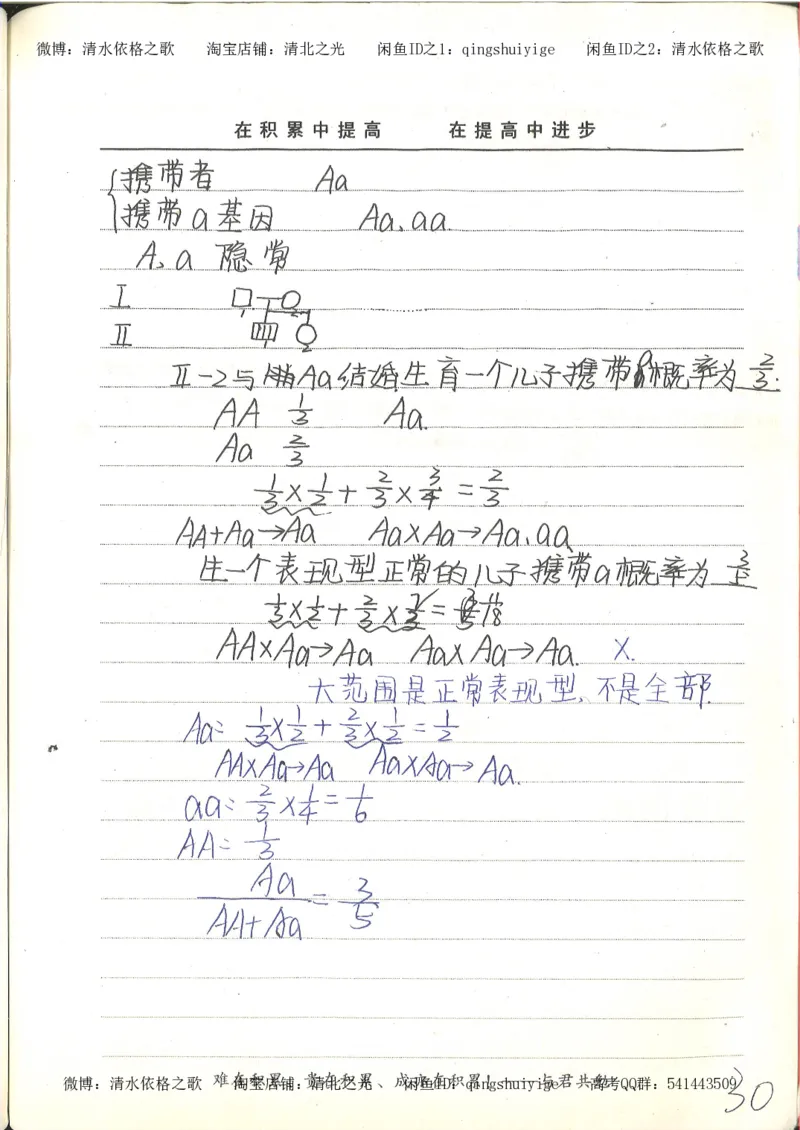 微博：清水依格之歌 淘宝店铺：清北之光 闲鱼ID之1：qingshuiyige 闲鱼ID之2：清水依格之歌
在积累中提高 在提高中进步
携带者 Aa
携带a基因 Aa、aa.
A、a 隐常
I
1 2
II
1 2
II-2与Aa结婚生育一个儿子携带a概率为2/3.
AA 1/3 Aa.
Aa 2/3
1/3×1/2+2/3×3/4=2/3
AA+Aa→Aa Aa×Aa→Aa、aa
生一个表现型正常的儿子携带a概率为3/5
1/3×1/2+2/3×2/3=11/18
AA×Aa→Aa Aa×Aa→Aa. X.
大范围是正常表现型、不是全部.
Aa=1/3×1/2+2/3×1/2=1/2
AA×Aa→Aa Aa×Aa→Aa.
aa=2/3×1/4=1/6
AA=1/3
Aa/(AA+Aa)=3/5
难在积累、贵在积累、成亦在积累！
微博：清水依格之歌 淘宝店铺：清北之光 闲鱼ID：qingshuiyige 高考QQ群：541443509
30